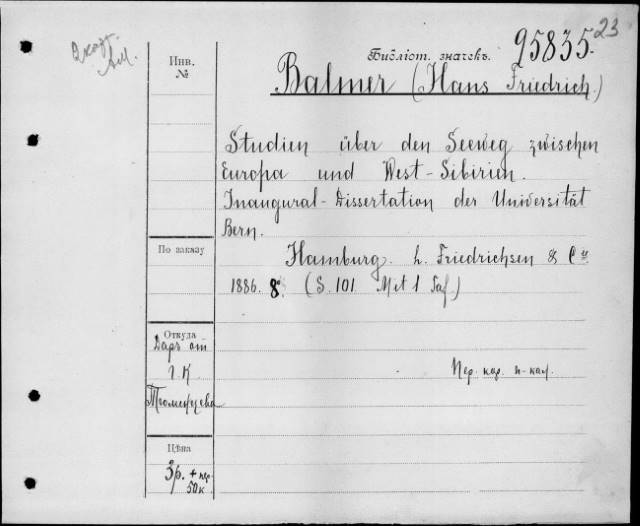 23
Инв.
№
Библіот. значекъ.
95835.
Balmer (Hans Friedrich.)
Studien über den Seeweg zwischen
Europa und West-Sibirien.
Inaugural-Dissertation der Universität
Bern.
Hamburg. L. Friedrichsen & Cie
1886. 8°. (S. 101 Mit 1 Taf.)
По заказу
Откуда
Даръ от
Г. К
Цѣна
3р. + пер
50к